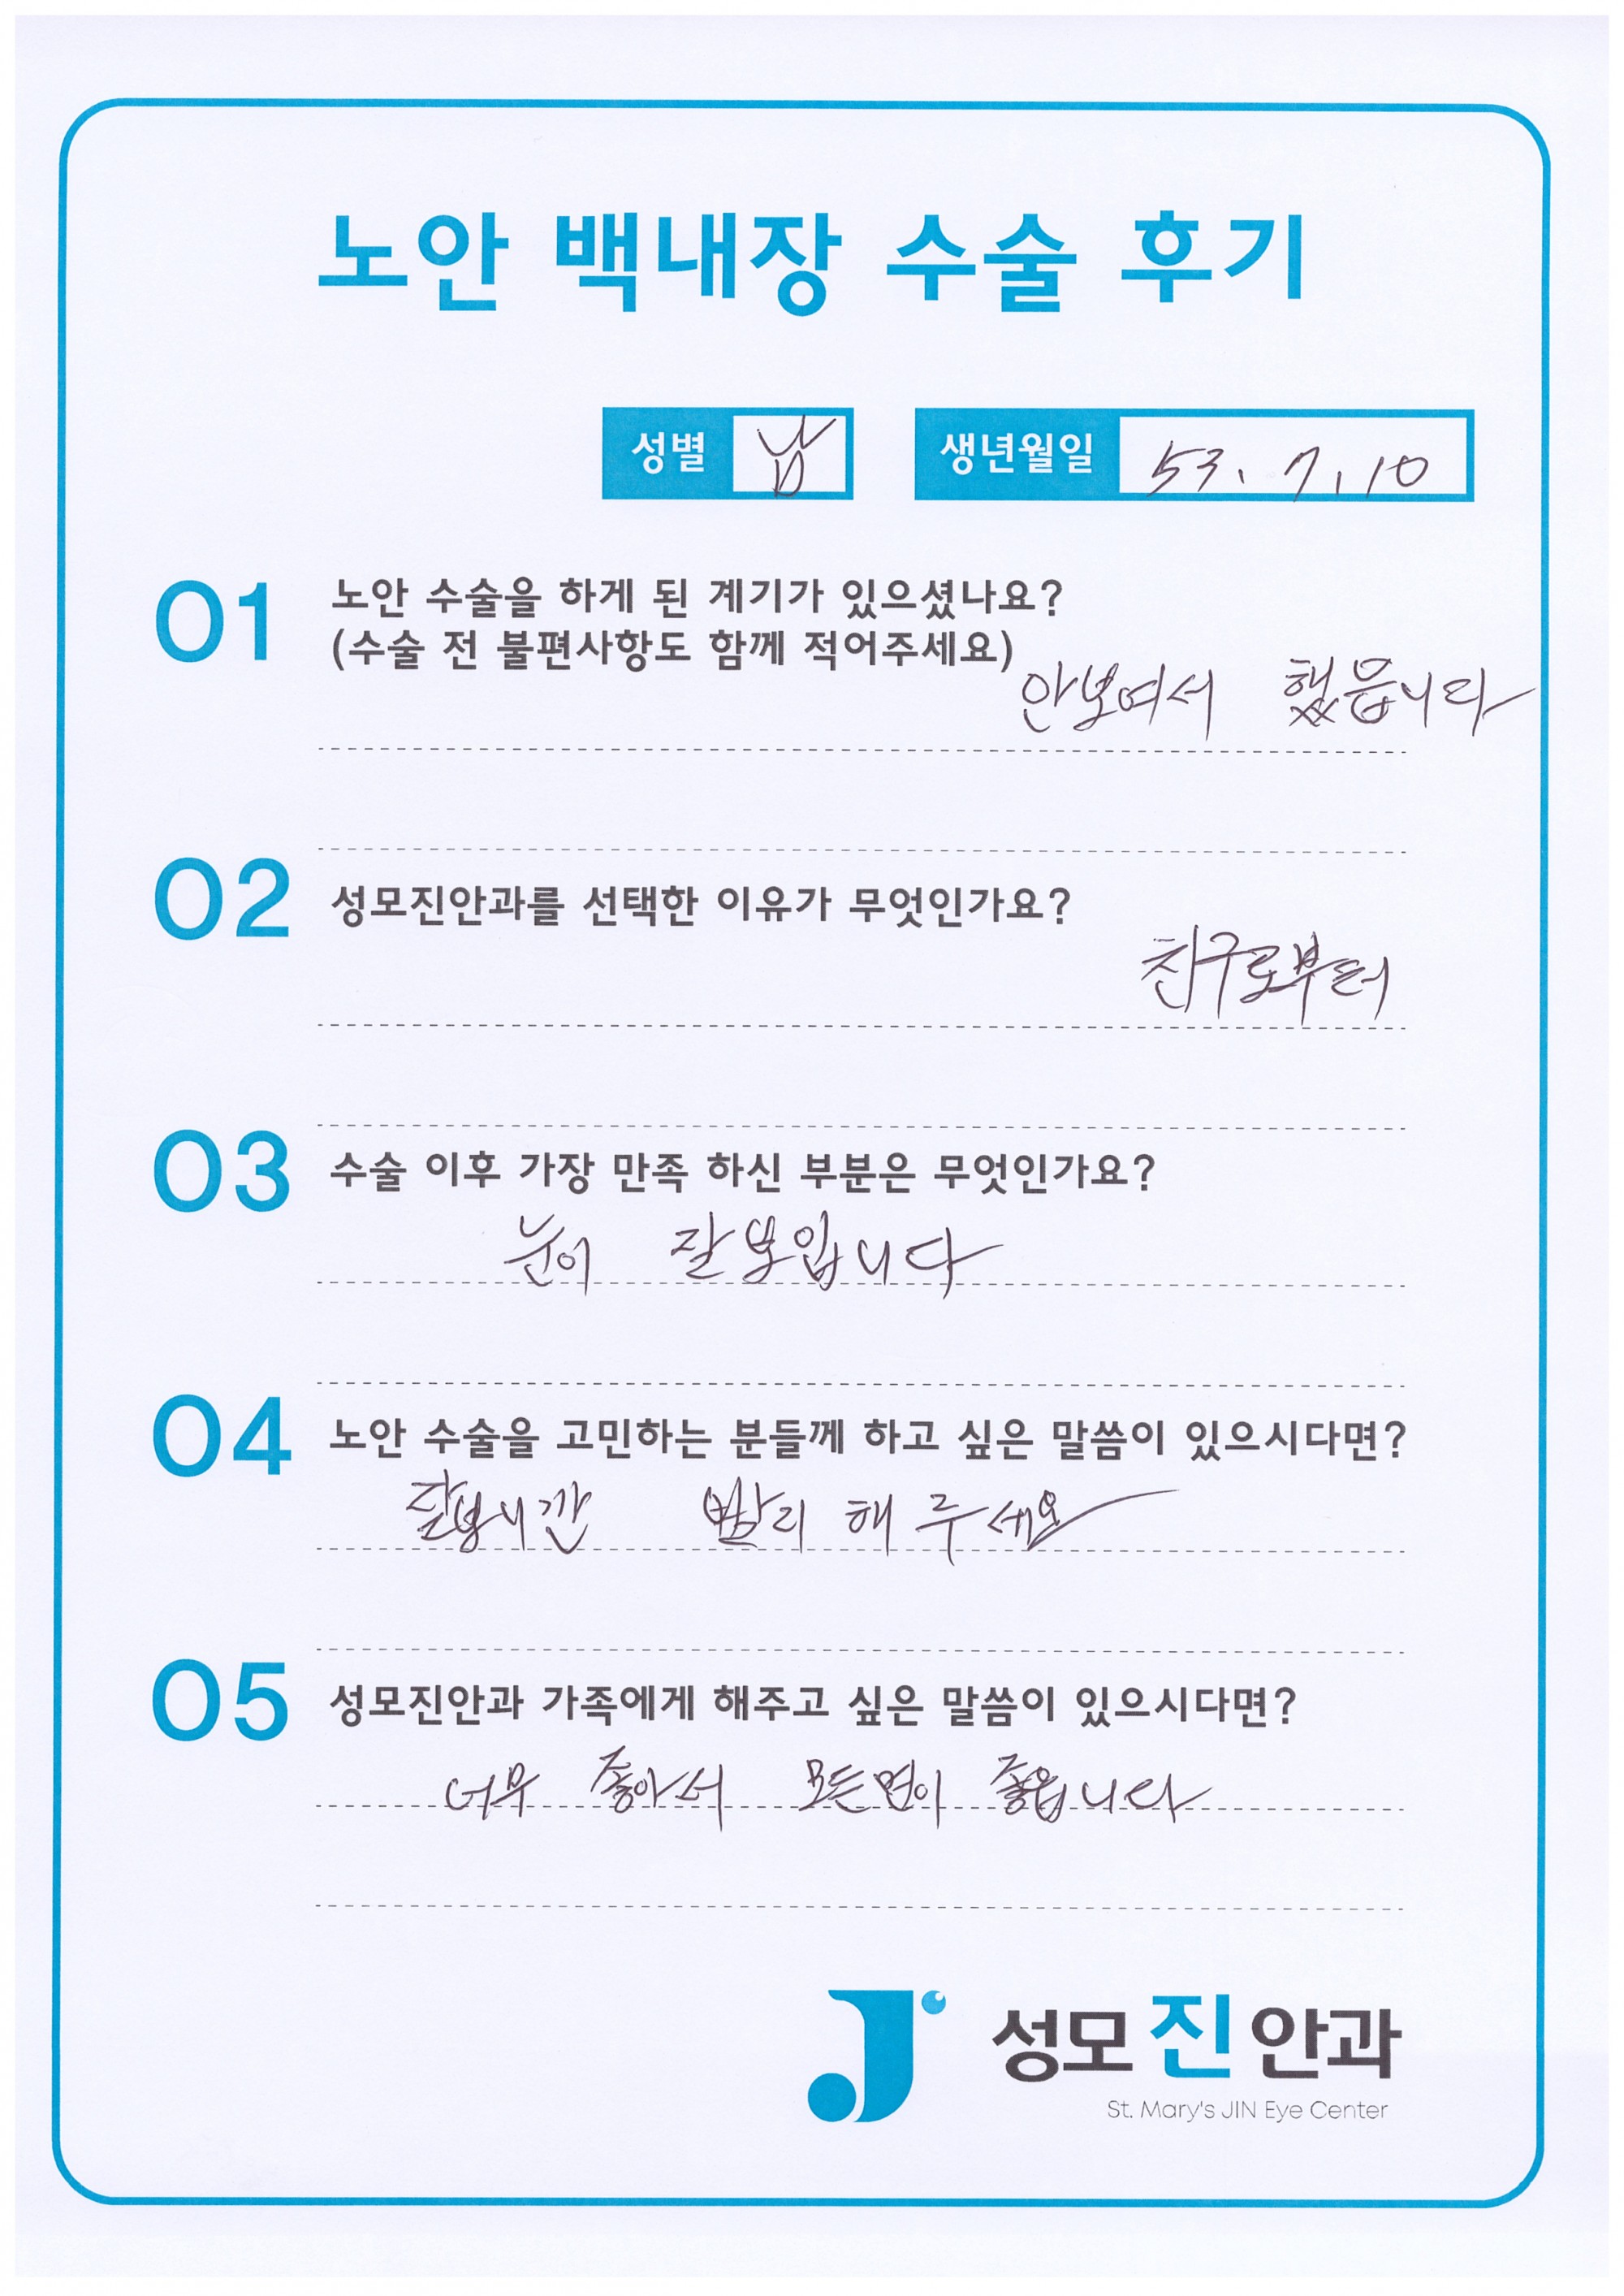 노안 백내장 수술 후기
성별 남 생년월일 53. 7. 10
01 노안 수술을 하게 된 계기가 있으셨나요?
(수술 전 불편사항도 함께 적어주세요)
안보여서 했읍니다
02 성모진안과를 선택한 이유가 무엇인가요?
친구로부터
03 수술 이후 가장 만족 하신 부분은 무엇인가요?
눈이 잘보입니다
04 노안 수술을 고민하는 분들께 하고 싶은 말씀이 있으시다면?
빨리 해 주세요
05 성모진안과 가족에게 해주고 싶은 말씀이 있으시다면?
너무 좋아서 모든면이 좋읍니다
성모진안과
St. Mary's JIN Eye Center